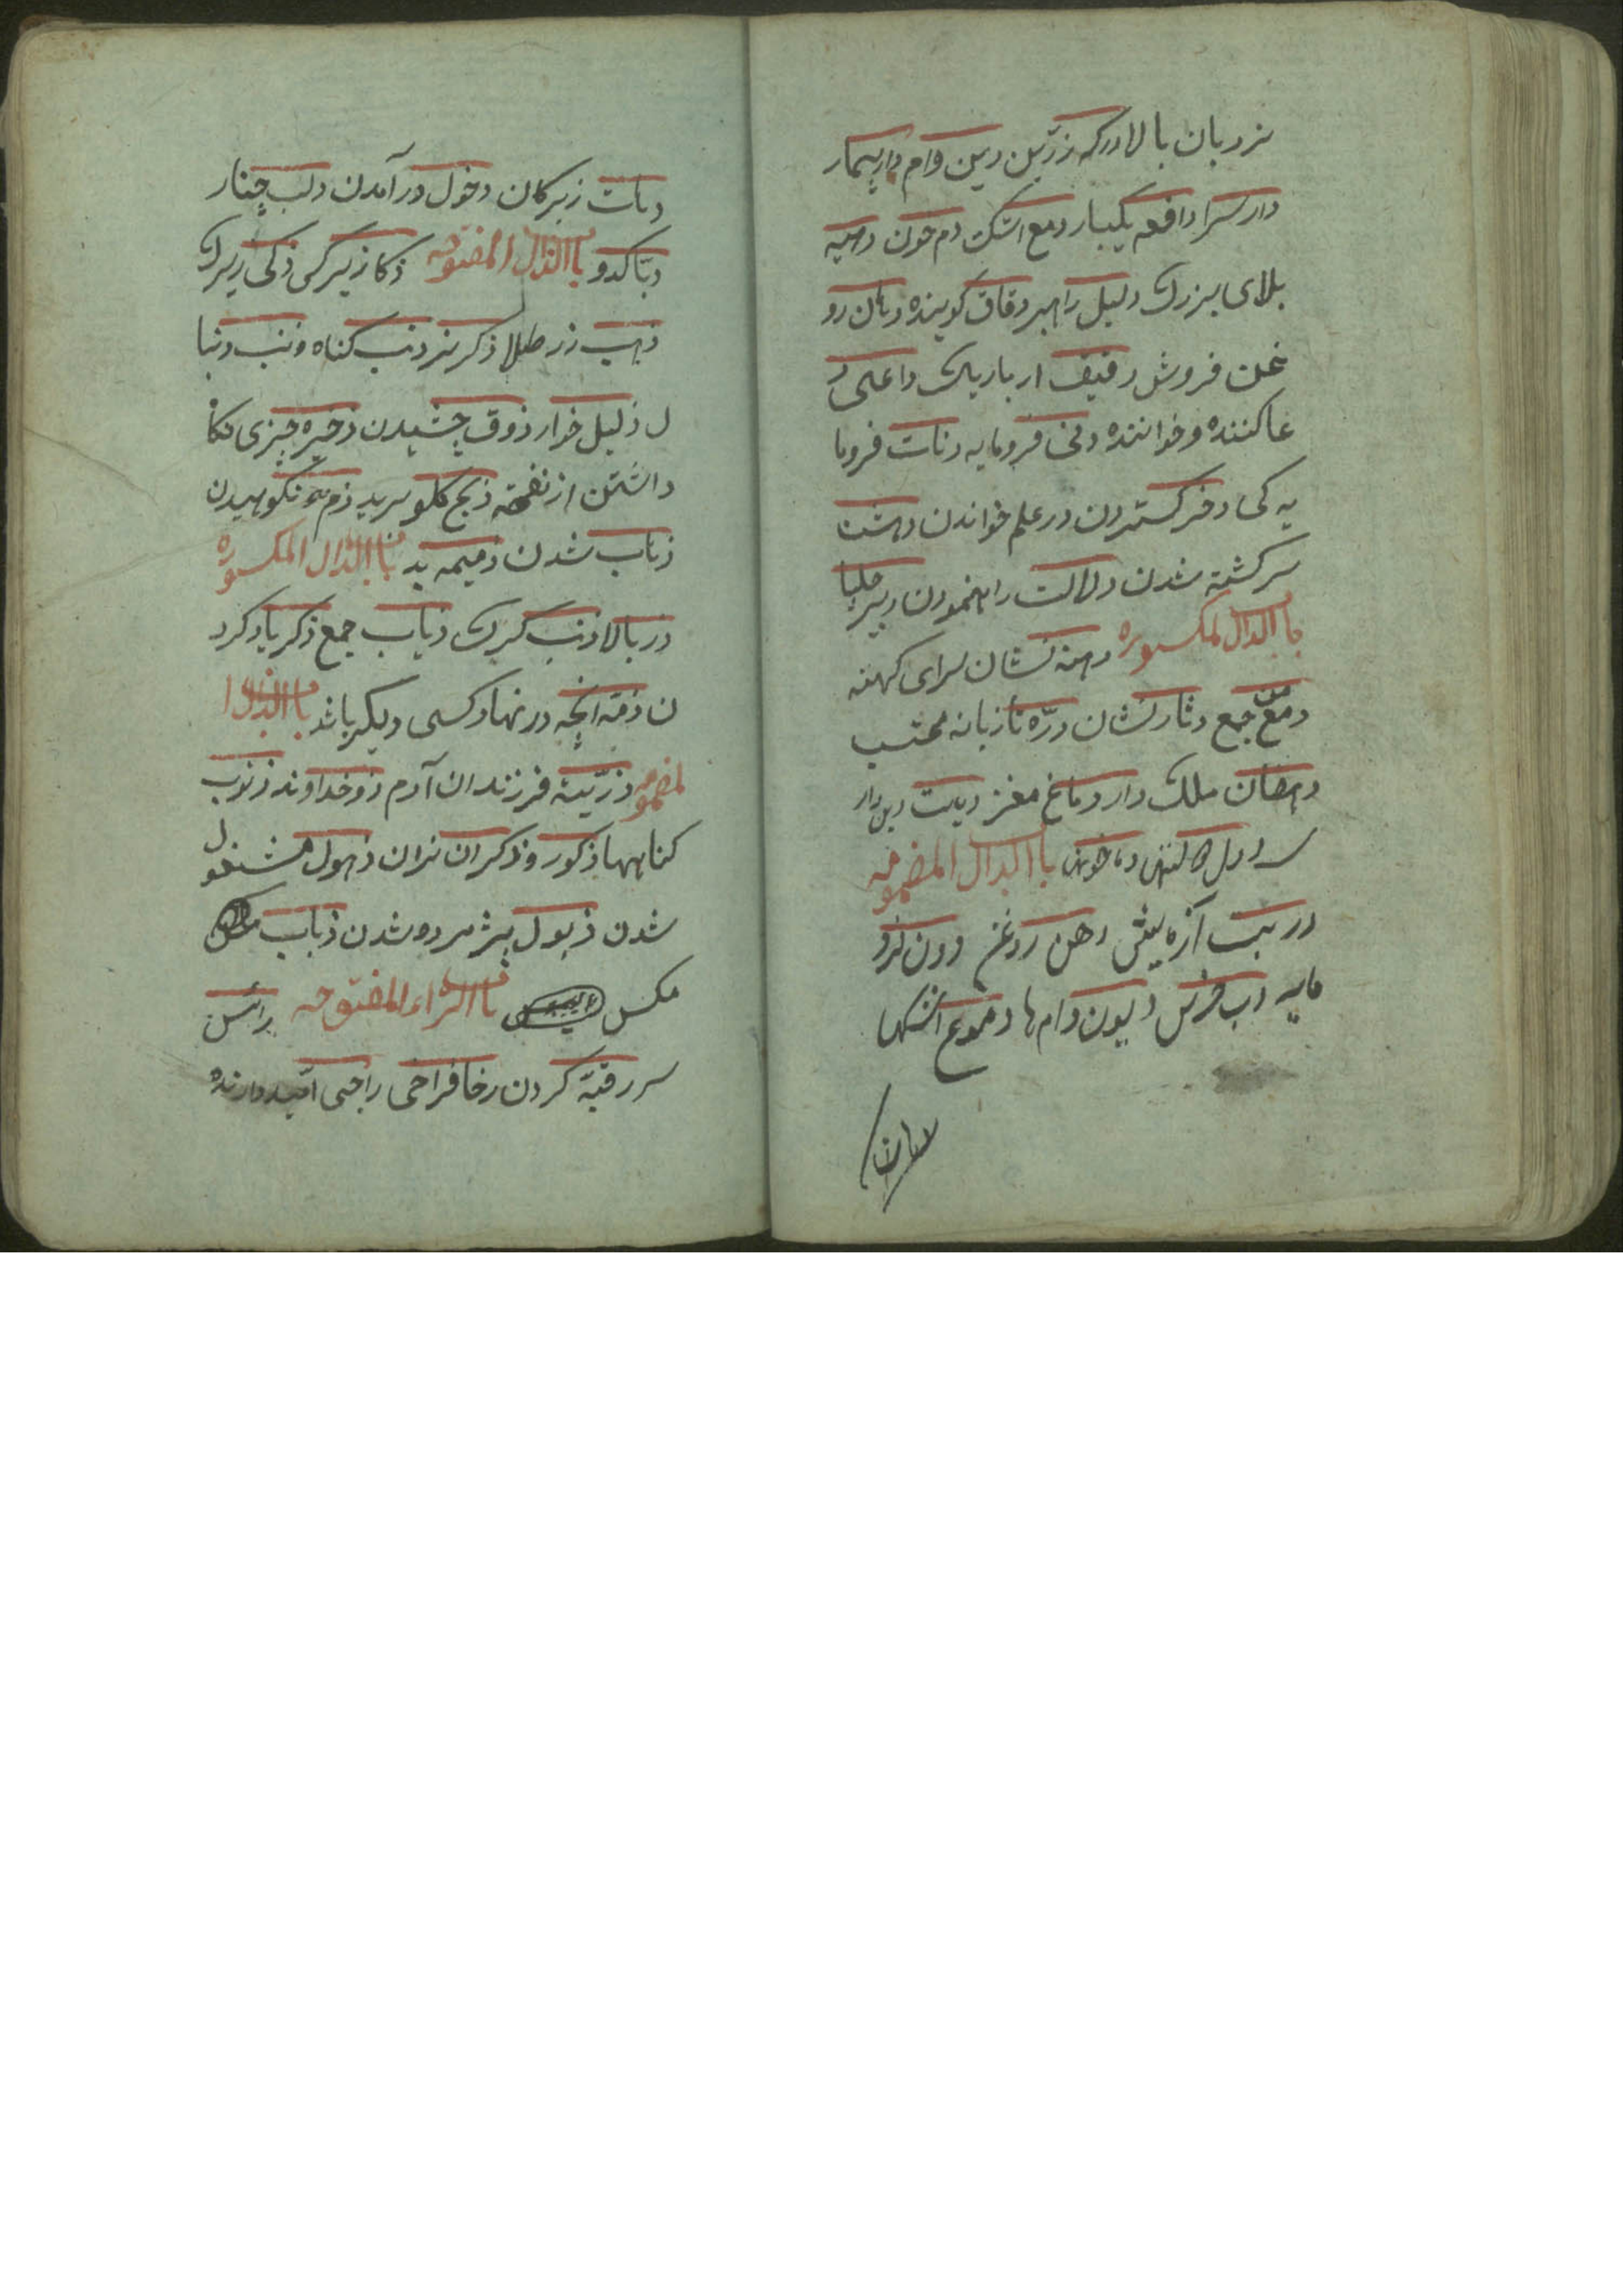 نردبان بالا درکه زرین دین وام دا بیمار
دار سرا دافعه یکبار دمع اشک دم خون داهیه
بلای بزرک دلیل راهبر دقاق کوینده دهان رو
غن فروش دقیق ار باریک داعی د
عا کننده و خواننده دنی فرومایه دنات فروما
یه کی دخر کستردن در علم خواندن دهشت
سرکشته شدن دلالت راه نمودن دبیر
باالدال المکسوره دمنه نشان سرای کهنه
دمن جمع دثار نشان درّه تازیانه محتسب
دهقان ملک دار دماغ مغز دیت
باالدال المضمومه
دهن روغن دون فرو
مایه دب خرس دیون وام ها دموع اشکها
دهات زیرکان دخول درآمدن دلب چنار
دبّا کدو باالذال المفتوحه ذکا زیرکی ذکی زیرک
ذهب زر طلا ذکر نر ذنب کناه وذنب دنبا
ل ذلیل خوار ذوق چشیدن ذخیره چیزی نکا
داشتن از نفقه ذبح کلو برید ذم نکوهیدن
ذهاب شدن ذمیمه بد باالذال المکسوره
در بالا ذئب کرک ذیاب جمع ذکر یاد کرد
ن ذمّه انچه در نهاد کسی دیکر باشد باالذال ا
لمضمومه ذرّیة فرزندان آدم ذو خداوند ذنوب
کناهها ذکور و ذکران نران ذهول مشغول
شدن ذبول پژمرده شدن ذباب
مکس باالراء المفتوحه راس
سر رقبة کردن رخا فراخی راجی امیددارنده